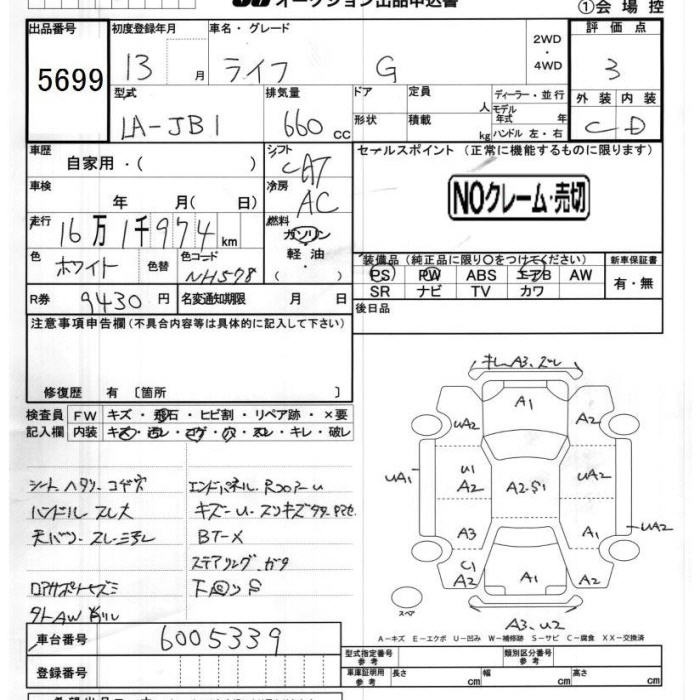 オークション出品申込書
①会場控
出品番号 初度登録年月 車名・グレード 2WD・4WD 評価点
5699 13 月 ライフ G 3
型式 排気量 ドア 定員 人 ディーラー・並行 外装 内装
LA-JB1 660 cc 形状 積載 kg モデル年式 年 ハンドル 左・右 C D
車歴 自家用・( ) シフト CAT セールスポイント (正常に機能するものに限ります)
車検 年 月( 日) 冷房 AC NOクレーム・売切
走行 16万1千974 km 燃料 ガソリン 軽油・( )
色 ホワイト 色替 色コード NH578
装備品(純正品に限り○をつけてください) 新車保証書
PS PW ABS エアB AW 有・無
SR ナビ TV カワ
R券 9430円 名変通知期限 月 日 後日品
注意事項申告欄(不具合内容等は具体的に記入して下さい)
修復歴 有 〔箇所 〕
検査員記入欄 FW キズ・飛石・ヒビ割・リペア跡・×要
内装 キズ・汚レ・コゲ・穴・スレ・キレ・破レ
シートヘタリ.コゲ穴 エンドパネル.Rフロアーu
ハンドルスレ大
BT-X
ステアリング.ガタ
キレ.A3.ズレ
A1
UA2 A2
UA1 U1 A2 A2.S1 A2
A3 A1 UA2
C1 A2 A1 A2
スペア A3.U2
A-キズ E-エクボ U-凹み W-補修跡 S-サビ C-腐食 XX-交換済
車台番号 6005339
型式指定番号 参考 類別区分番号 参考
登録番号 車庫証明用 参考 長さ cm 幅 cm 高さ cm